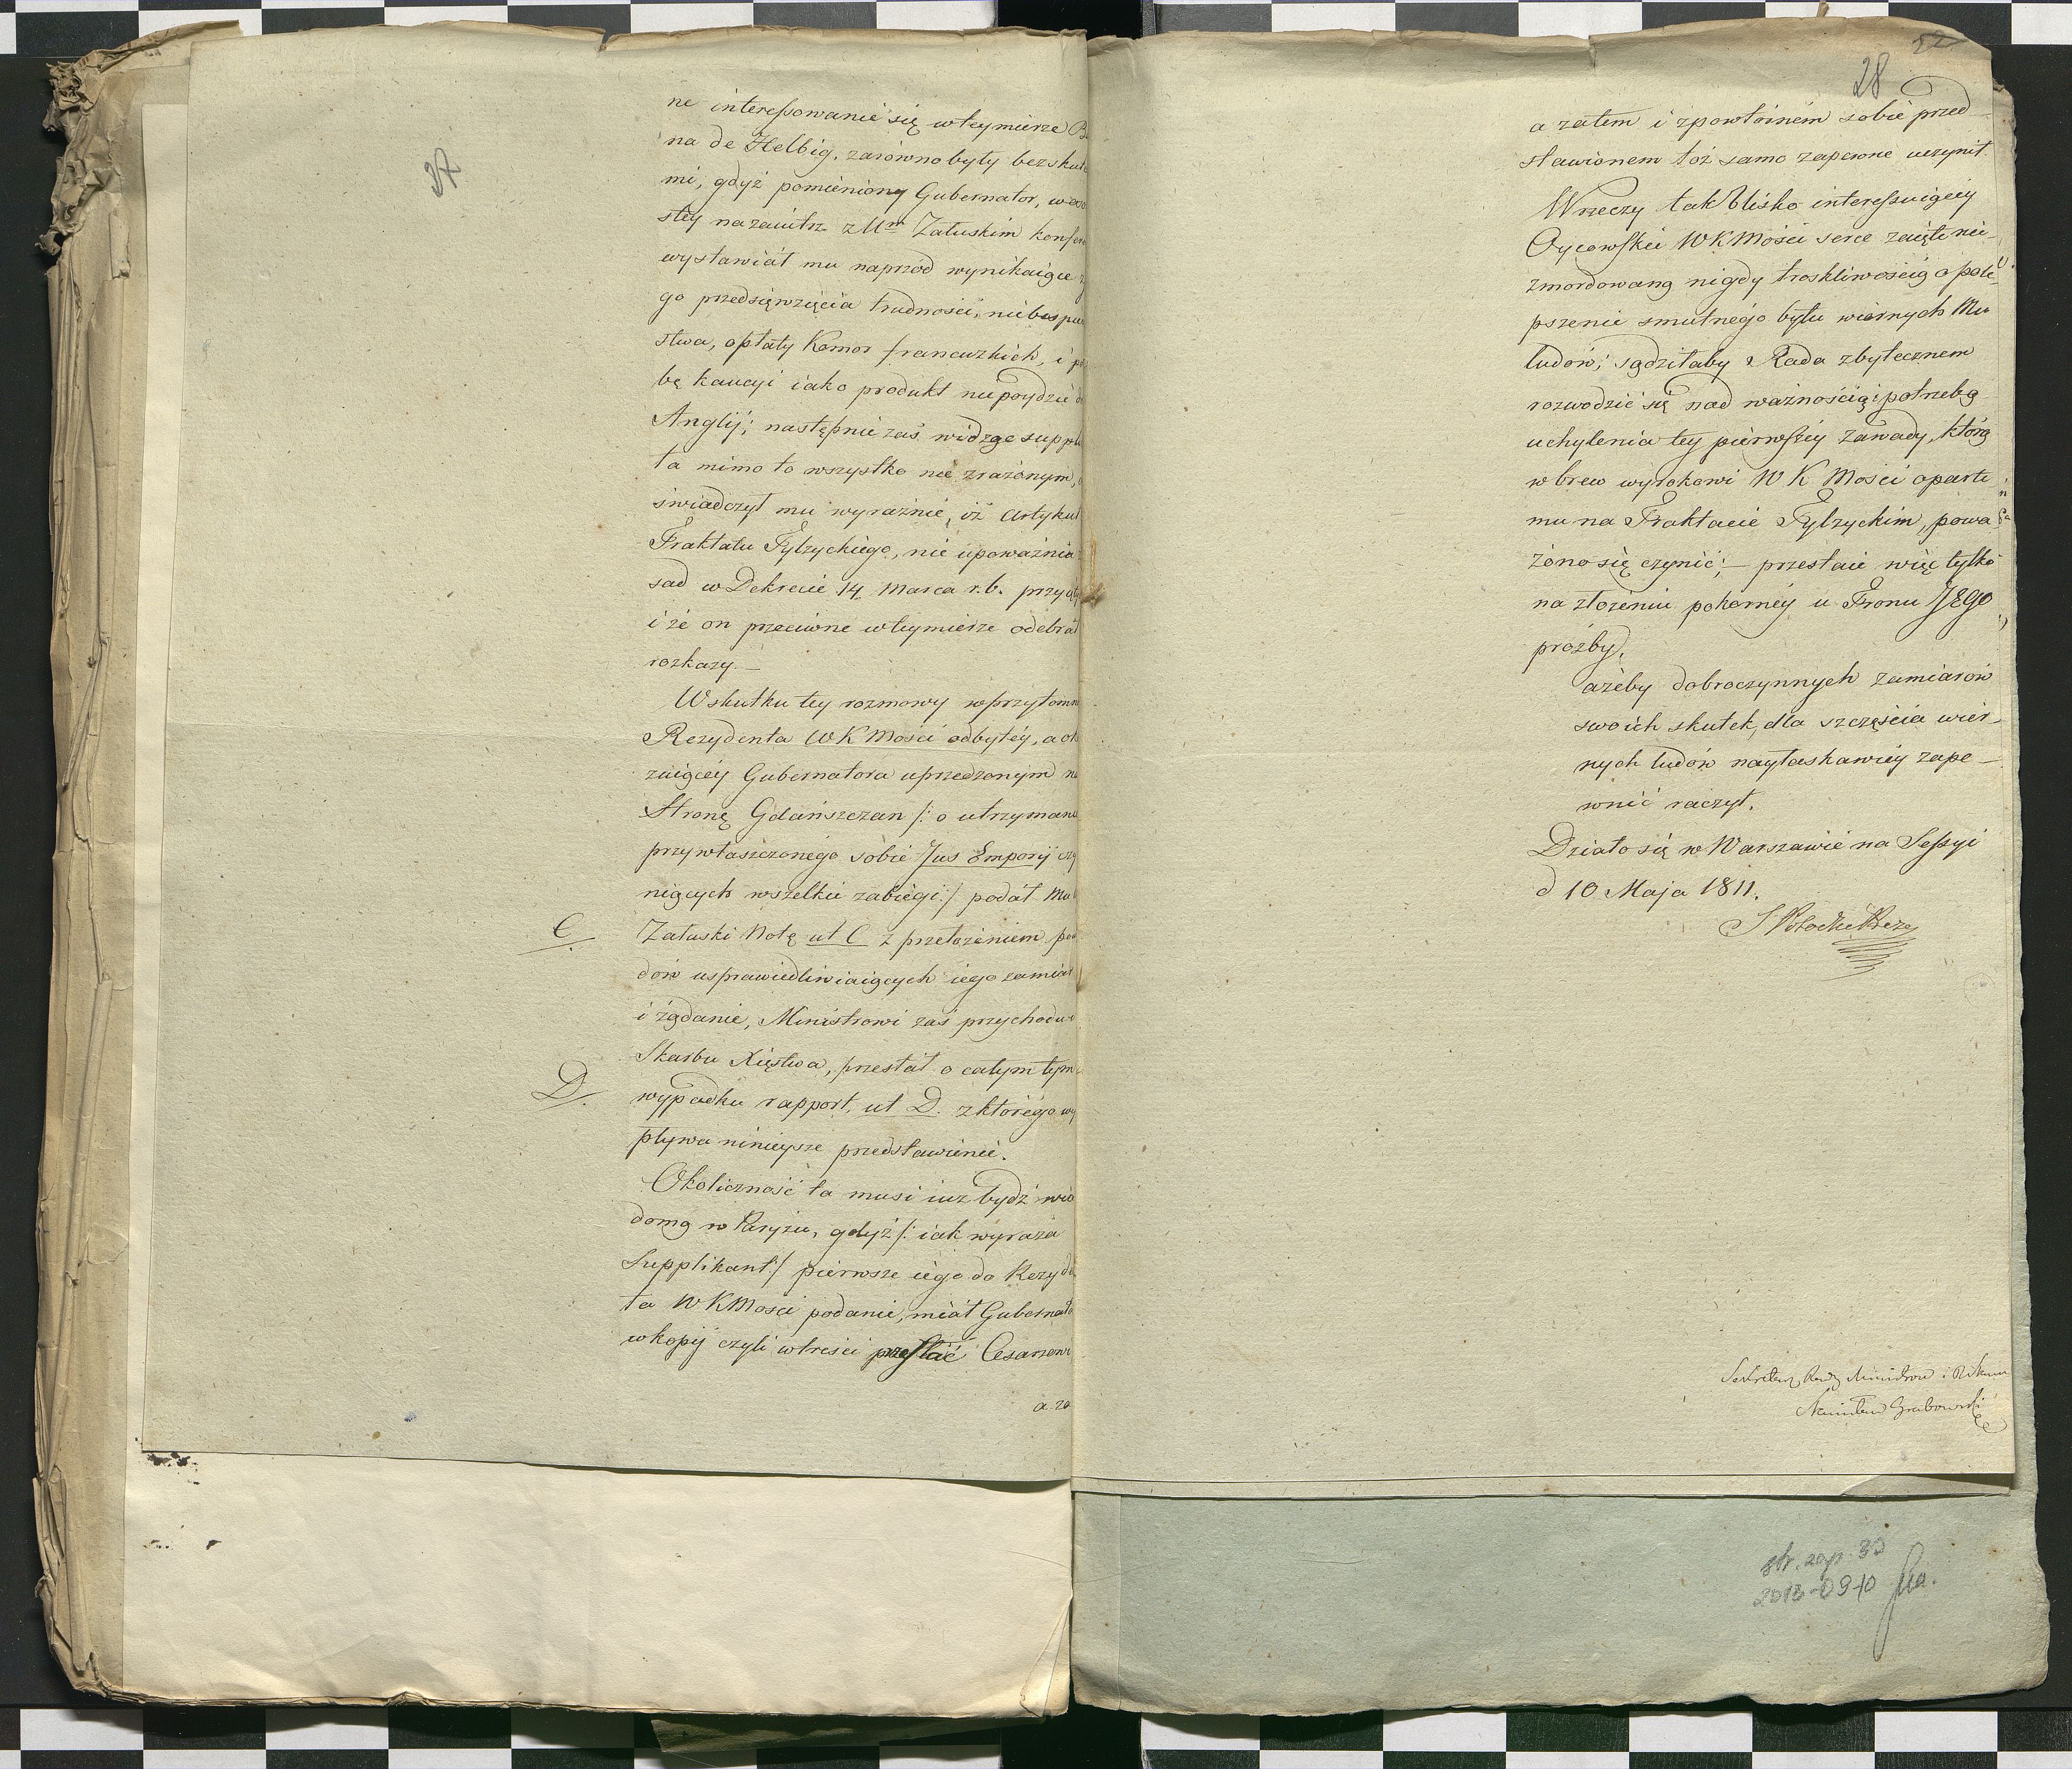 37
ne interessowanie się wteymierze
na de Helbig, zarówno były bezsku
mi, gdyż pomieniony Gubernator, w
stey nazaiutrz z Mm Załuskim konfer
wystawiał mu naprzód wynikaiące z
go przedsięwzięcia trudności, niebespie
stwa, opłaty Komor francuzkich, i po
bę kaucyi iako produkt niepoydzie d
Anglij; następnie zaś widząc suppl
ta mimo to wszystko nie zrażonym,
świadczył mu wyraźnie, iż Artykuł
Traktatu Tylzyckiego, nie upoważnia
sad w Dekrecie 14 Marca r.b. przyię
i że on przeciwne wteymierze odebrał
rozkazy.—
Wskutku tey rozmowy wprzytomn
Rezydenta WKMości odbytéy, a ok
zuiącéy Gubernatora uprzedzonym na
Stronę Gdańszczan /: o utrzymani
przywłaszczonego sobie Jus Emporij czy
niących wszelkie zabiegi :/ podał Mu
C.
Załuski Notę ut C z przełożeniem pow
dów usprawiedliwiaiących iego zamiar
i żądanie, Ministrowi zaś przychodu
Skarbu Xięstwa, przesłał o całym tym
D.
wypadku rapport, ut D. zktórégo wy
pływa ninieysze przedstawienie.
Okoliczność ta musi iuz bydź wia
domą w Paryżu, gdyż /: iak wyraża
Supplikant :/ piérwsze iégo do Rezyde
ta WKMości podanie, miał Gubernato
wkopij czyli wtreści przesłać Cesarzowi
a za
52
28
a zatem i zpowtórnem sobie przed
stawionem toż samo zapewne uczynił.
Wrzeczy tak blisko interessuiącéy
Oycowskie WKMości serce zaięte nie-
zmordowaną nigdy troskliwością o pole-
pszenie smutnégo bytu wiernych Mu
ludów; sądziłaby Rada zbytecznem
rozwodzić się nad ważnością i potrzebą
uchylenia tey piérwszéy zawady, którą
wbrew wyrokowi WKMości oparte
mu na Traktacie Tylzyckim, powa
żono się czynić; — przestaie więc tylko
na złożeniu pokornéy u Tronu JEGO
prożby,
ażeby dobroczynnych zamiarów
swoich skutek, dla szczęścia wier-
nych ludów nayłaskawiéy zape-
wnić raczył.
Działo się w Warszawie na Sessyi
d 10 Maja 1811.
S Potocki Prezes
Sekretarz Rady Ministrów i
Stanisław Grabowski
str. zap. 30
2013-09-10